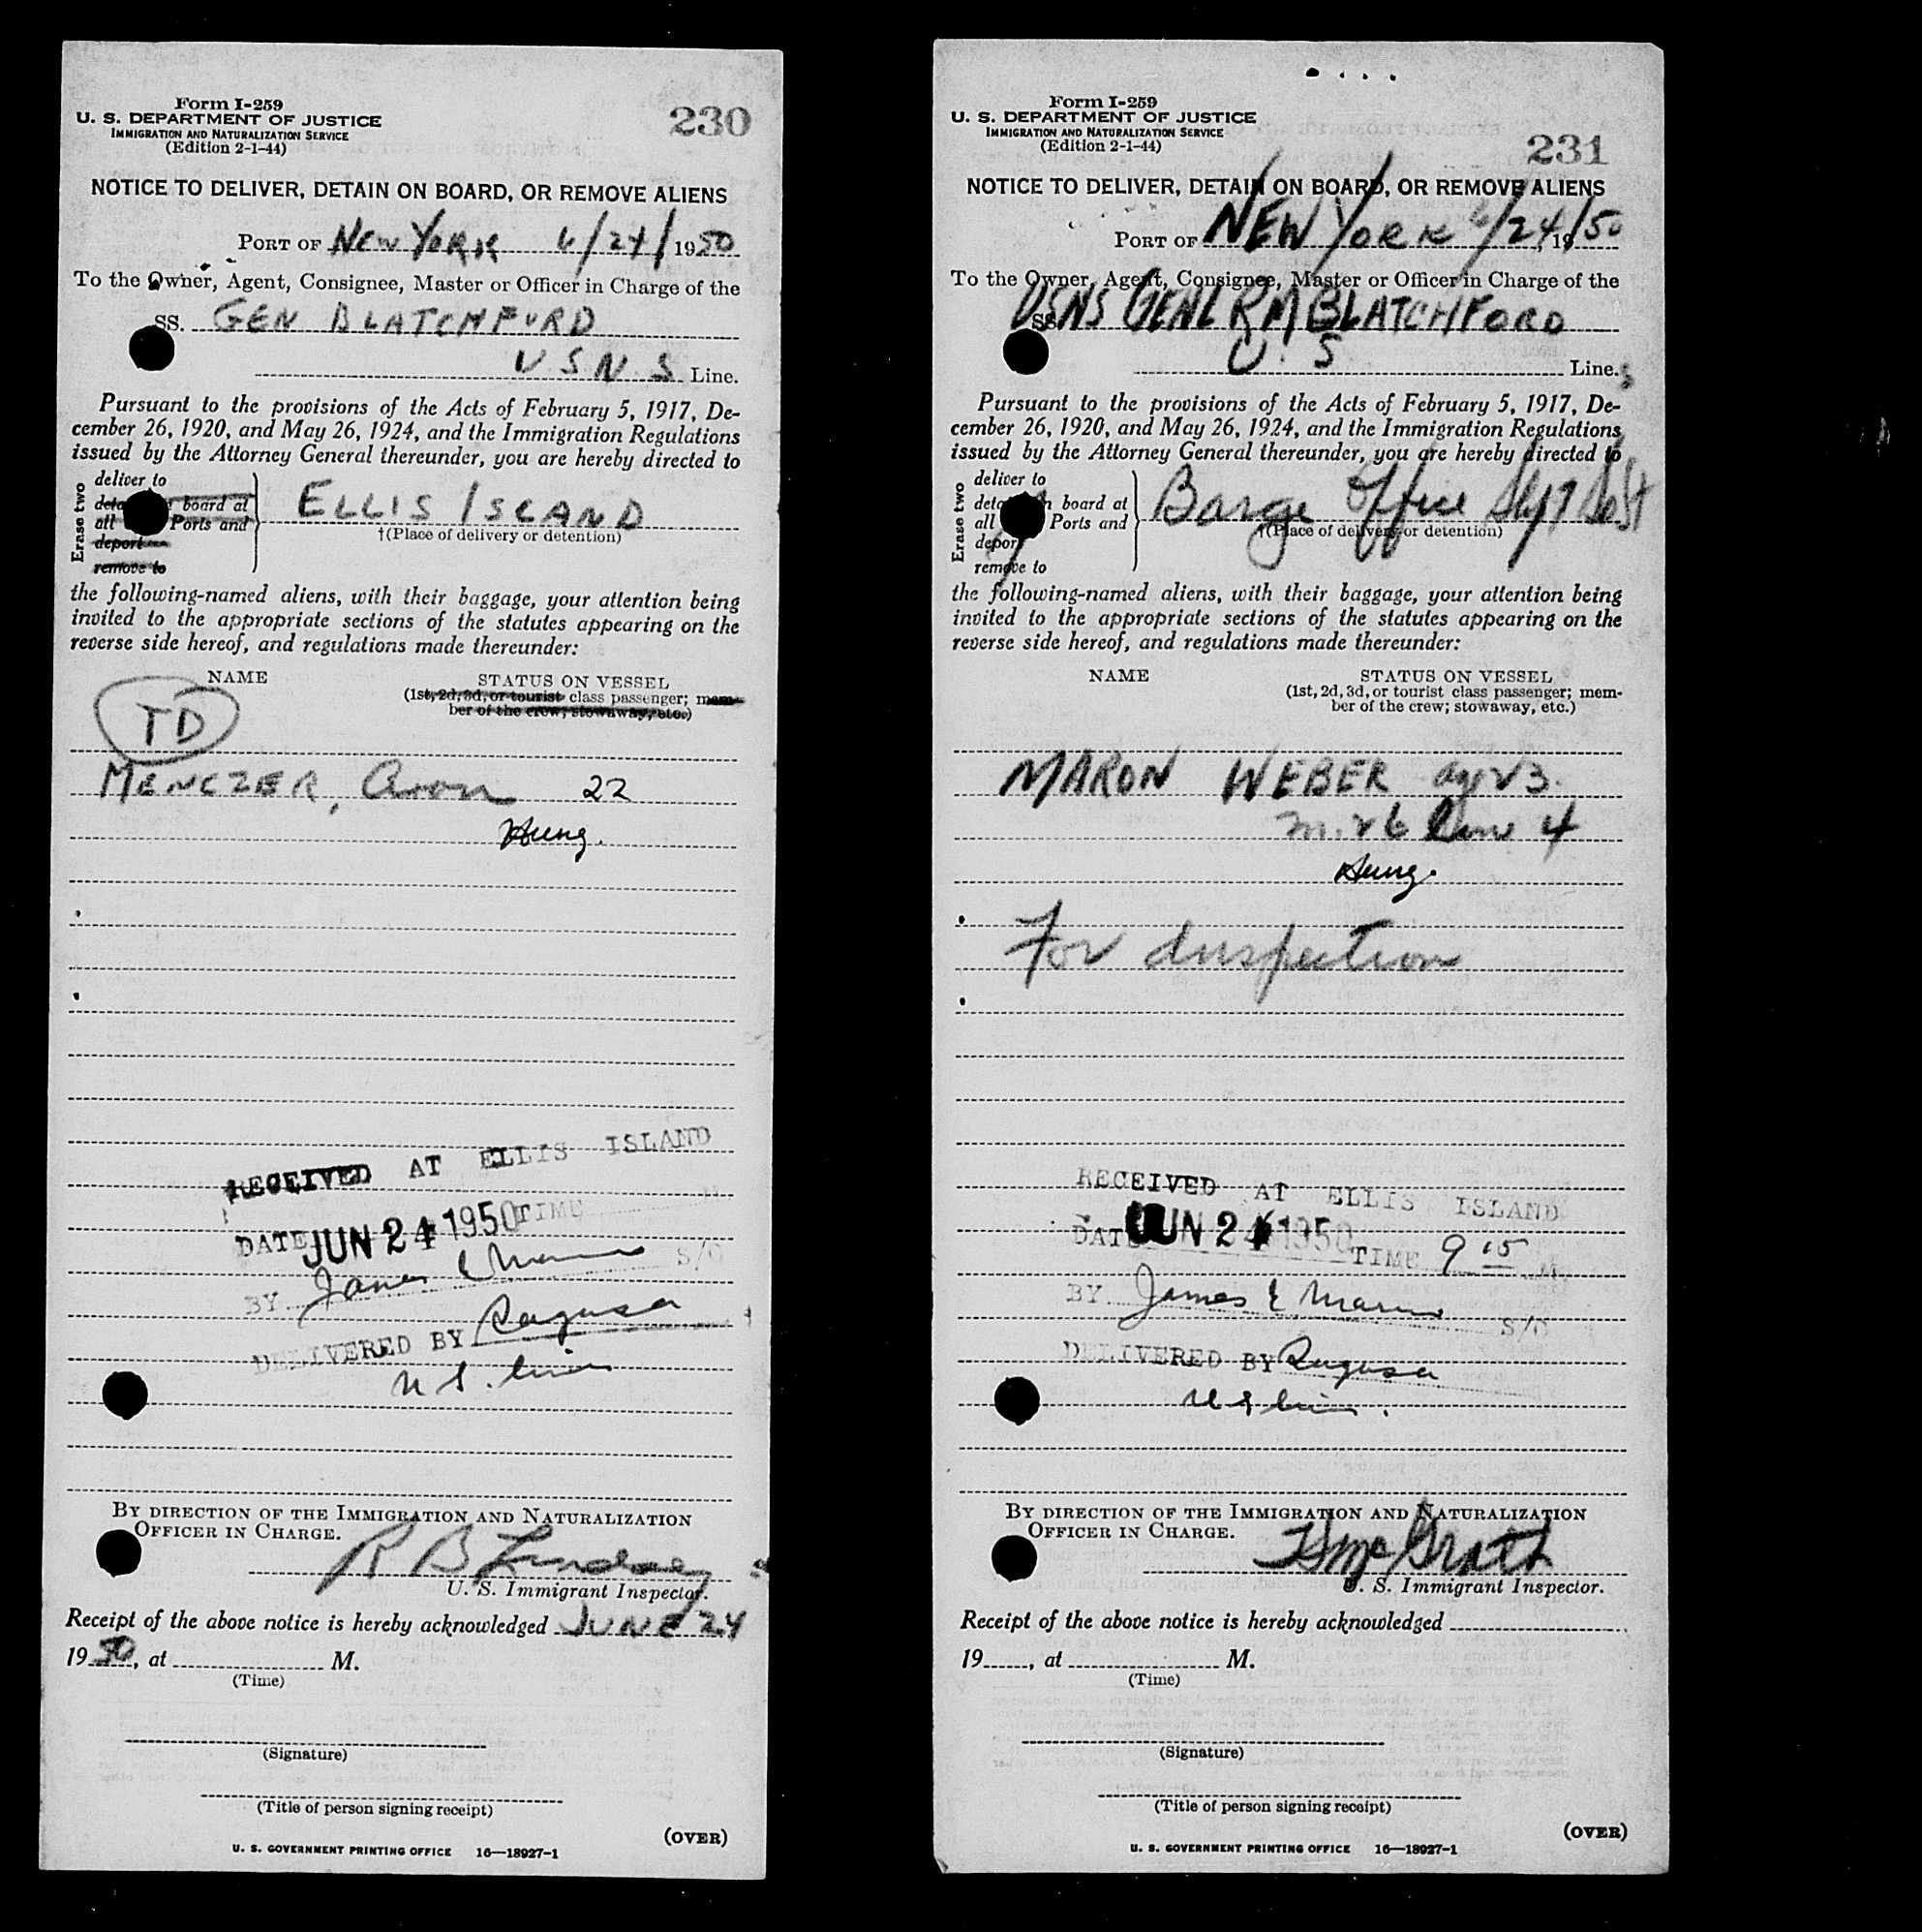 Form I-259
U. S. DEPARTMENT OF JUSTICE
IMMIGRATION AND NATURALIZATION SERVICE
(Edition 2-1-44)
230
NOTICE TO DELIVER, DETAIN ON BOARD, OR REMOVE ALIENS
PORT OF NEW YORK 6/24/1950
To the Owner, Agent, Consignee, Master or Officer in Charge of the
SS. GEN BLATCHFORD
U.S.N.S Line.
Pursuant to the provisions of the Acts of February 5, 1917, De-
cember 26, 1920, and May 26, 1924, and the Immigration Regulations
issued by the Attorney General thereunder, you are hereby directed to
Erase two
deliver to
board at
all Ports and
deport
remove to
ELLIS ISLAND
†(Place of delivery or detention)
the following-named aliens, with their baggage, your attention being
invited to the appropriate sections of the statutes appearing on the
reverse side hereof, and regulations made thereunder:
NAME STATUS ON VESSEL
(1st, 2d, 3d, or tourist class passenger; mem-
ber of the crew; stowaway, etc.)
TD
MENCZER, Aron 22
Hung.
RECEIVED AT ELLIS ISLAND
DATE JUN 24 1950 TIME
BY James E S/O
DELIVERED BY Ragusa
U.S. Lines
BY DIRECTION OF THE IMMIGRATION AND NATURALIZATION
OFFICER IN CHARGE.
R B Lindsey
U. S. Immigrant Inspector.
Receipt of the above notice is hereby acknowledged JUNE 24
1950, at M.
(Time)
(Signature)
(Title of person signing receipt)
(OVER)
U. S. GOVERNMENT PRINTING OFFICE 16—18927-1
Form I-259
U. S. DEPARTMENT OF JUSTICE
IMMIGRATION AND NATURALIZATION SERVICE
(Edition 2-1-44)
231
NOTICE TO DELIVER, DETAIN ON BOARD, OR REMOVE ALIENS
PORT OF NEW YORK 6/24/1950
To the Owner, Agent, Consignee, Master or Officer in Charge of the
SS. USNS GENL R M BLATCHFORD
U.S Line.
Pursuant to the provisions of the Acts of February 5, 1917, De-
cember 26, 1920, and May 26, 1924, and the Immigration Regulations
issued by the Attorney General thereunder, you are hereby directed to
Erase two
deliver to
board at
all Ports and
deport
remove to
Barge Office
†(Place of delivery or detention)
the following-named aliens, with their baggage, your attention being
invited to the appropriate sections of the statutes appearing on the
reverse side hereof, and regulations made thereunder:
NAME STATUS ON VESSEL
(1st, 2d, 3d, or tourist class passenger; mem-
ber of the crew; stowaway, etc.)
MARON WEBER age 23.
m. 26 Line 4
Hung.
For Inspection
RECEIVED AT ELLIS ISLAND
DATE JUN 24 1950 TIME 9 15 M
BY James E S/O
DELIVERED BY Ragusa
U S Lines.
BY DIRECTION OF THE IMMIGRATION AND NATURALIZATION
OFFICER IN CHARGE.
McGrath
U. S. Immigrant Inspector.
Receipt of the above notice is hereby acknowledged
19 , at M.
(Time)
(Signature)
(Title of person signing receipt)
(OVER)
U. S. GOVERNMENT PRINTING OFFICE 16—18927-1